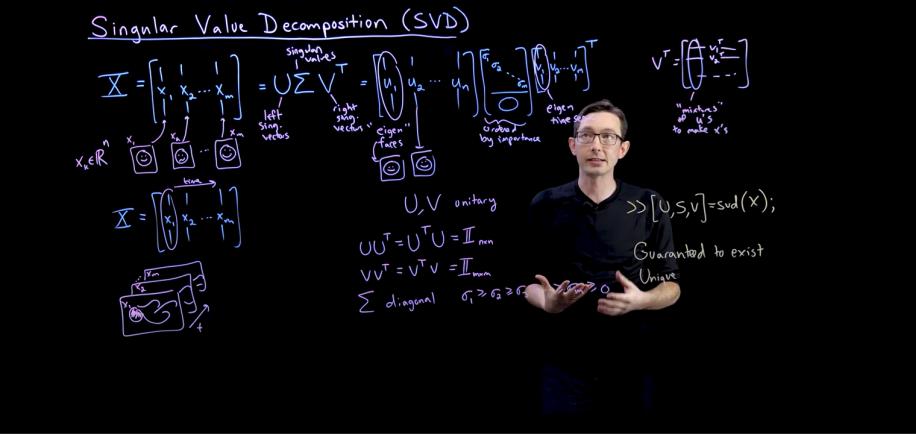 Singular Value Decomposition (SVD)
singular values
X = [x₁ x₂ ⋯ xₘ] = U Σ Vᵀ = [u₁ u₂ ⋯ uₙ] [σ₁ σ₂ ⋱ σₘ 0] [v₁ v₂ ⋯ vₘ]ᵀ
left sing. vectors
right sing. vectors
"eigen" faces
ordered by importance
eigen time
Vᵀ = [v₁ᵀ v₂ᵀ]
"mixtures" of u's to make x's
xₖ ∈ ℝⁿ
x₁ x₂ ⋯ xₘ
time
X = [x₁ x₂ ⋯ xₘ]
x₁ x₂ xₘ
t
U, V unitary
UUᵀ = UᵀU = 𝕀ₙₓₙ
VVᵀ = VᵀV = 𝕀ₘₓₘ
Σ diagonal σ₁ ≥ σ₂ ≥ σ₃ ≥ 0
>> [U,S,V] = svd(X);
Guaranteed to exist
Unique